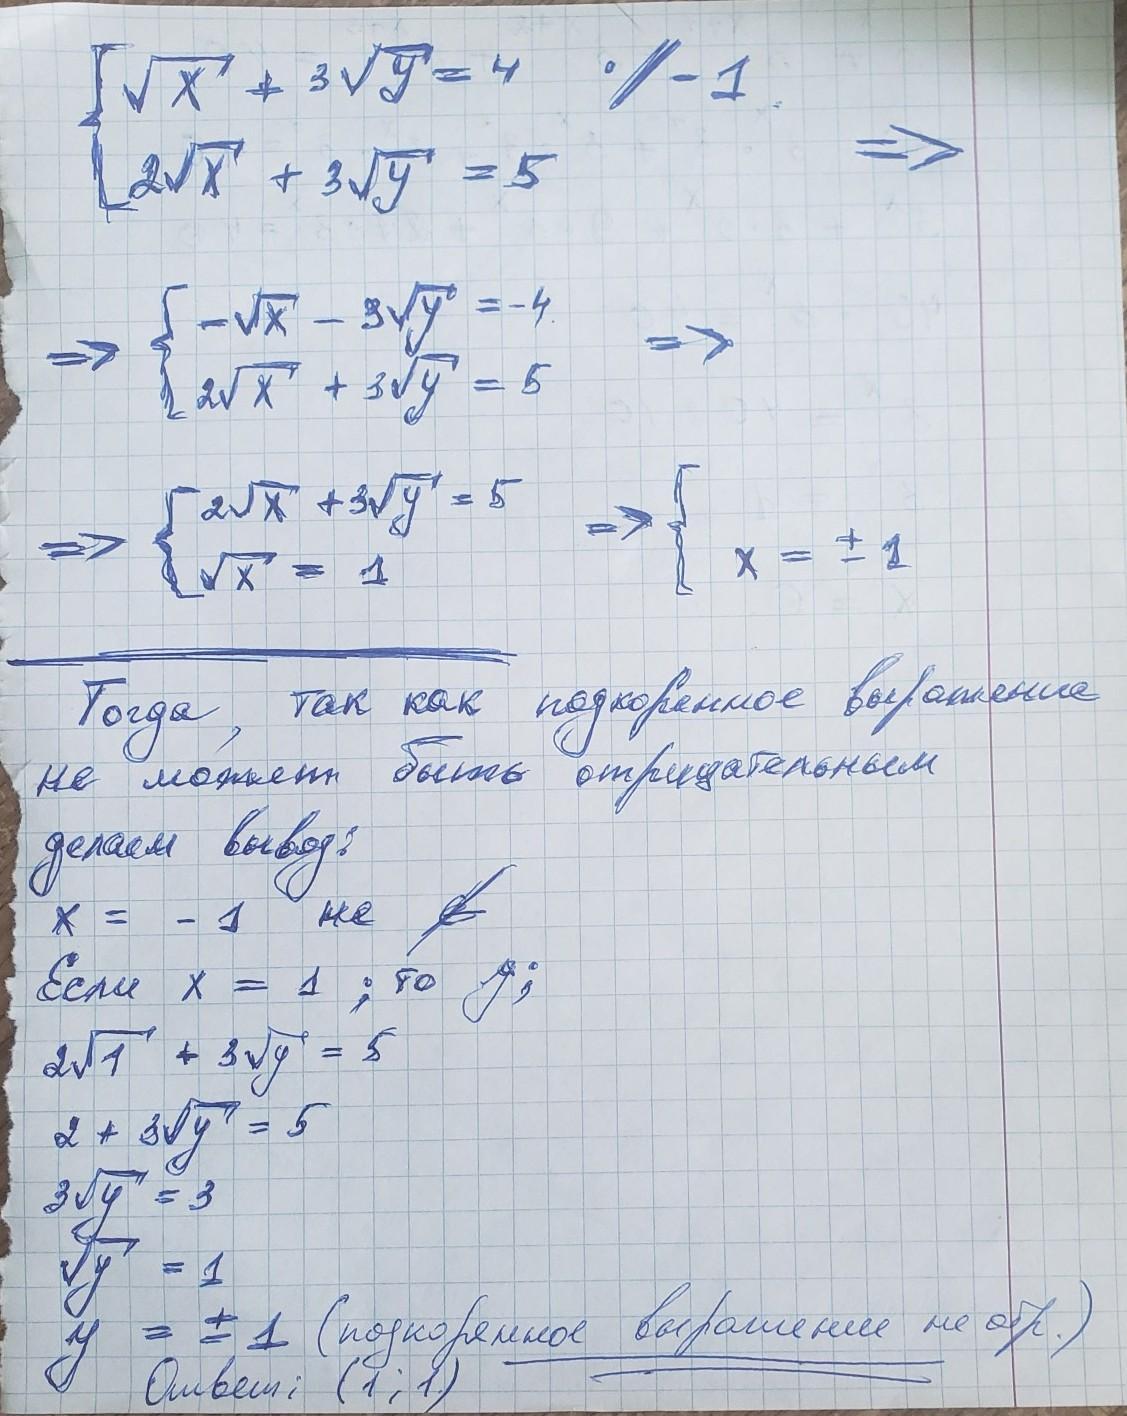 √x + 3√y = 4 ·// -1
2√x + 3√y = 5 =>
=> -√x - 3√y = -4
2√x + 3√y = 5 =>
=> 2√x + 3√y = 5
√x = 1 => x = ± 1
Тогда, так как подкоренное выражение
не может быть отрицательным
делаем вывод:
x = -1 не
Если x = 1 ; то y;
2√1 + 3√y = 5
2 + 3√y = 5
3√y = 3
√y = 1
y = ± 1 (подкоренное выражение не отр.)
Ответ: (1; 1)